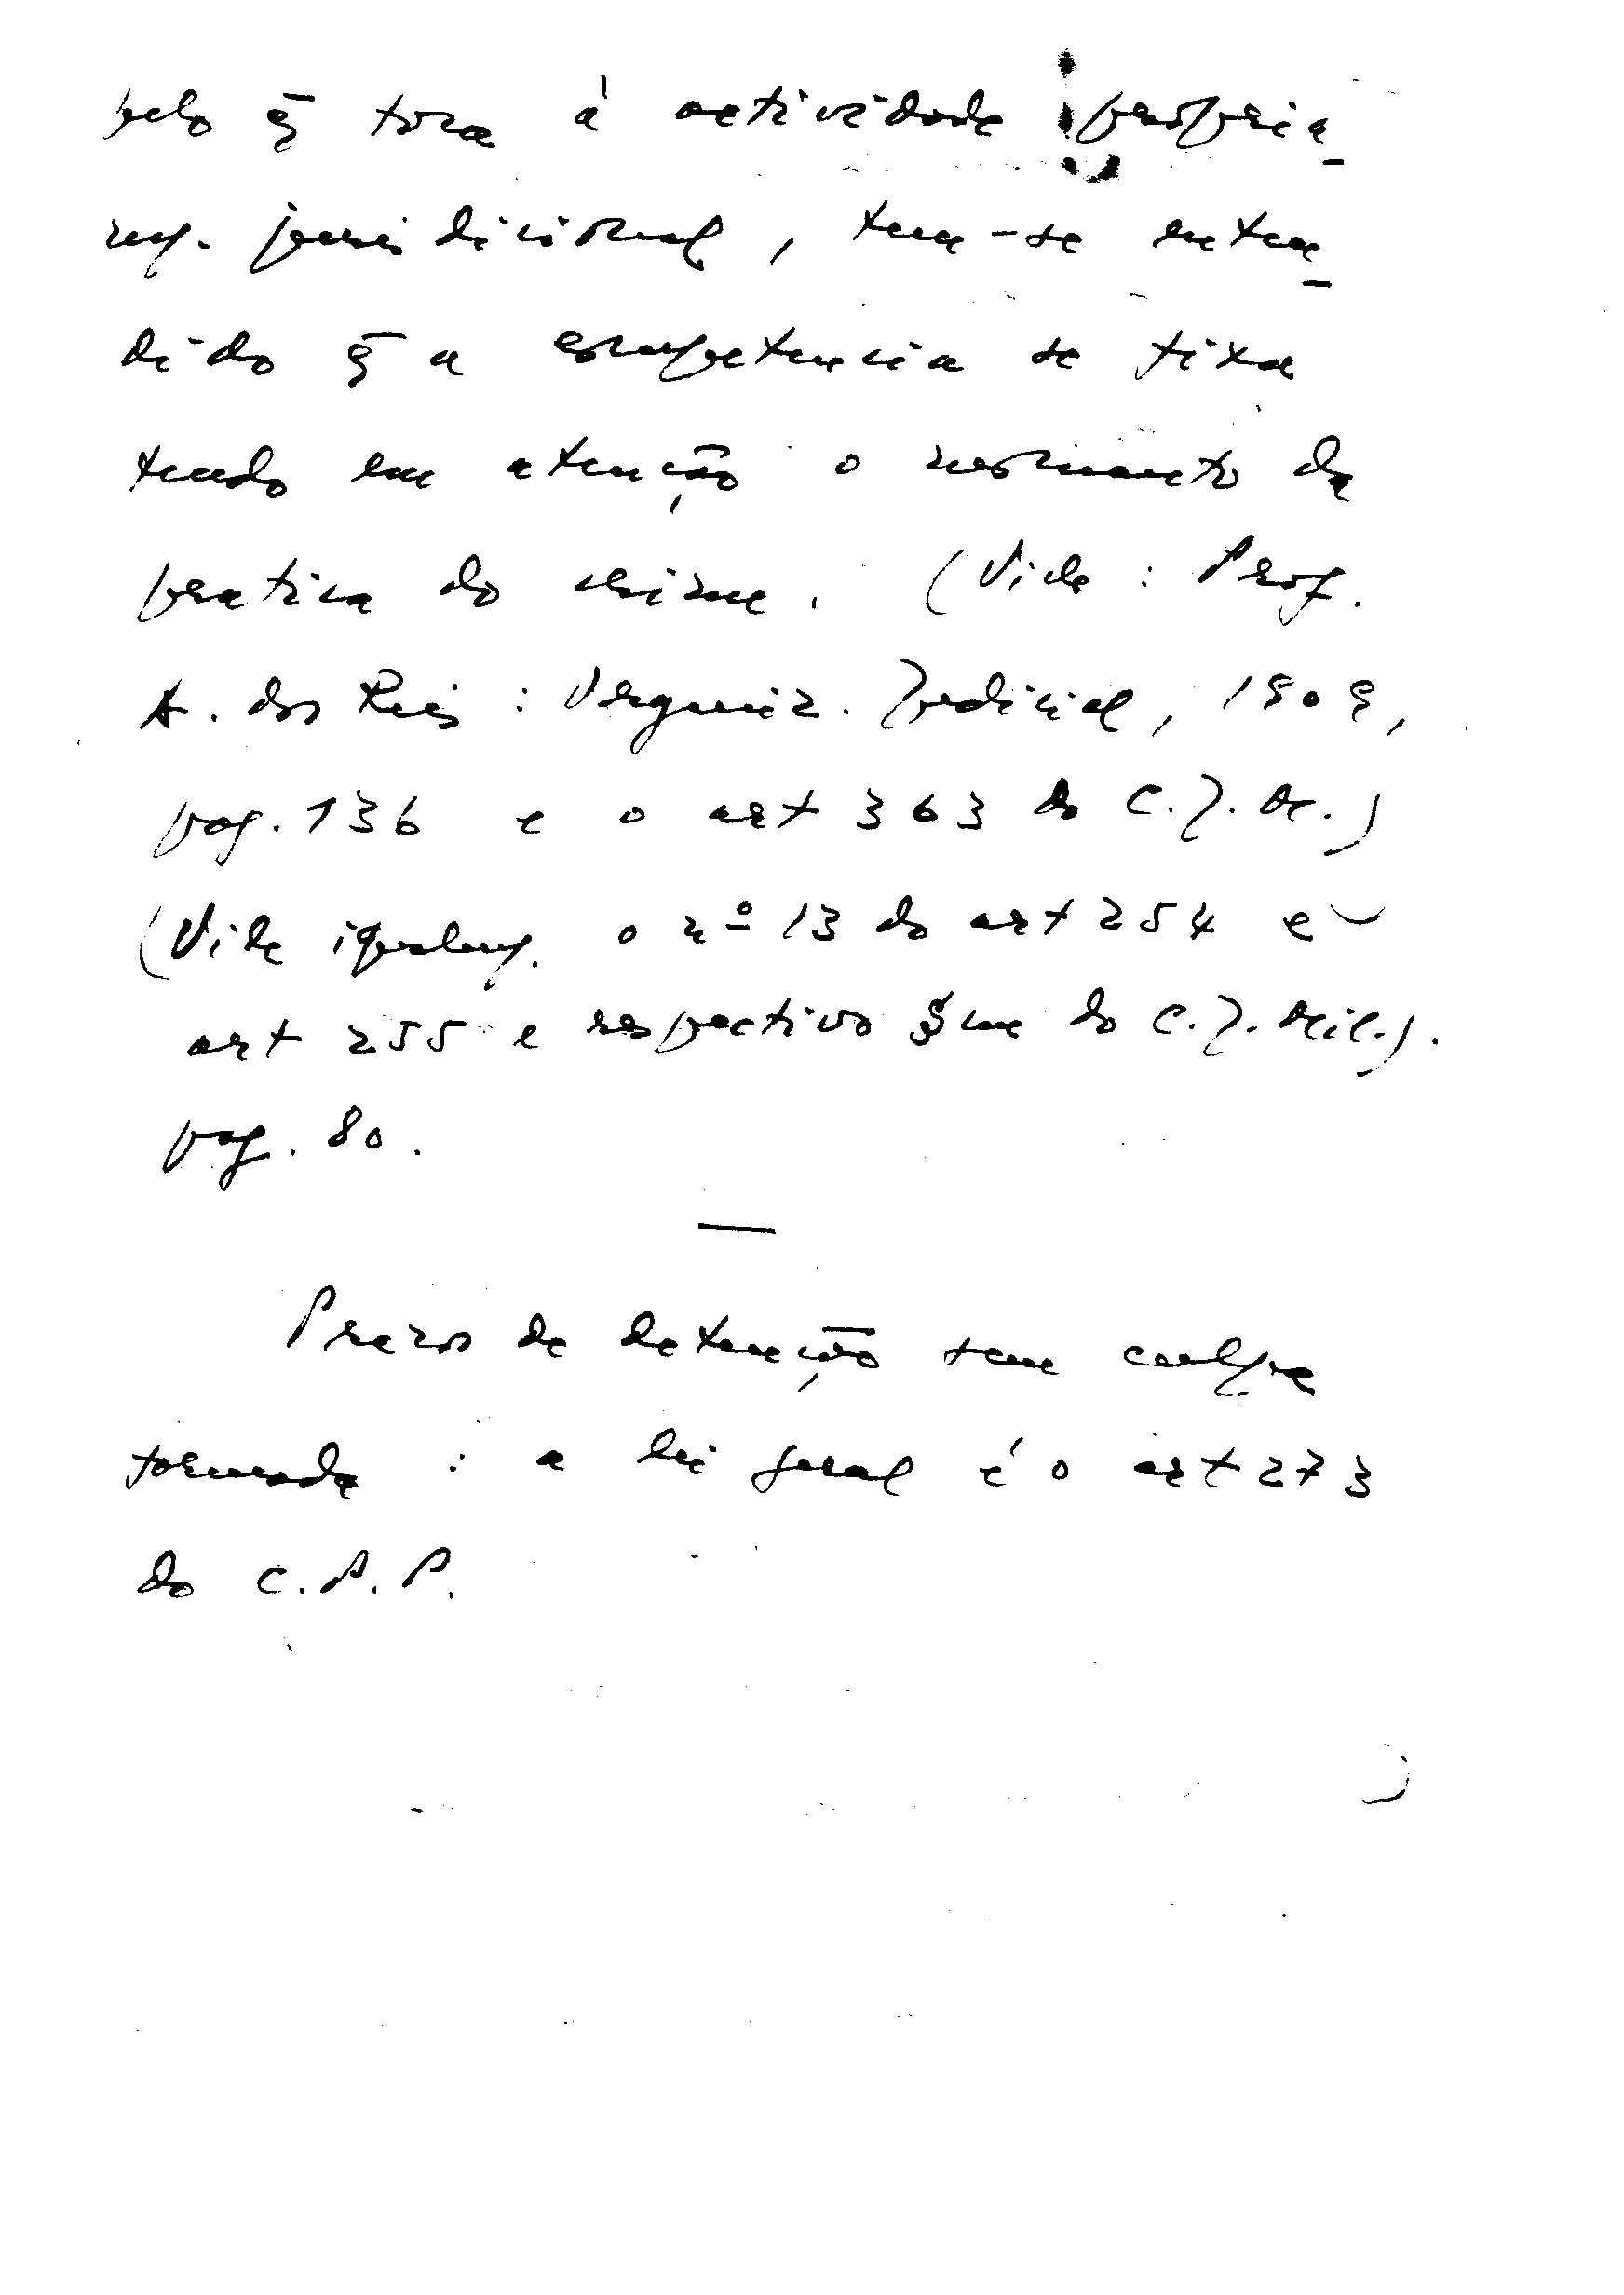 pelo q̄ toca à actividade propria-
mẽ. jurisdicional, tem-se enten-
dido q̄ a competencia se fixa
tendo em atenção o momento da
pratica do crime. (Vide: Prof.
A. dos Reis: Organiz. Judicial, 1909,
pag. 136 e o art 363 do C. J. M.)
(Vide igualmẽ. o nº 13 do art 254 e
art 255 e respectivo § un do C. J. Mil.).
pag. 80.
—
Prazos de detenção sem culpa
formada: a lei geral é o art 273
do C. P. P.